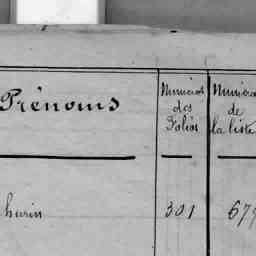 Prénoms
Numéros des Folios
Numéros de la liste
hurin 301